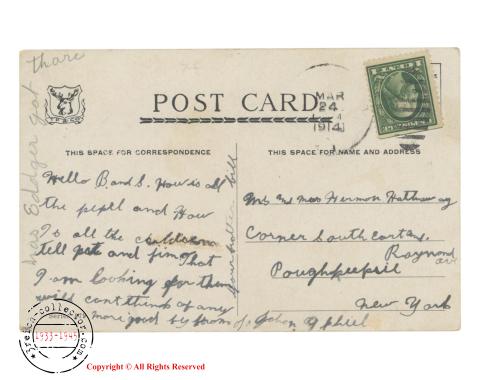 thare
has Eddger got
POST CARD
MAR
24
1914
THIS SPACE FOR CORRESPONDENCE
THIS SPACE FOR NAME AND ADDRESS
Hello B and S. How is all
the pepll and How
Is all the
tell pet and That
I am looking for them
well cant think of any
more good by from J. John
your brother bill
Mr and Mrs Herman Hathaway
Corner South
Raymond av
Poughkeepsie
New York
reich-collector.com
1933-1945
Copyright © All Rights Reserved